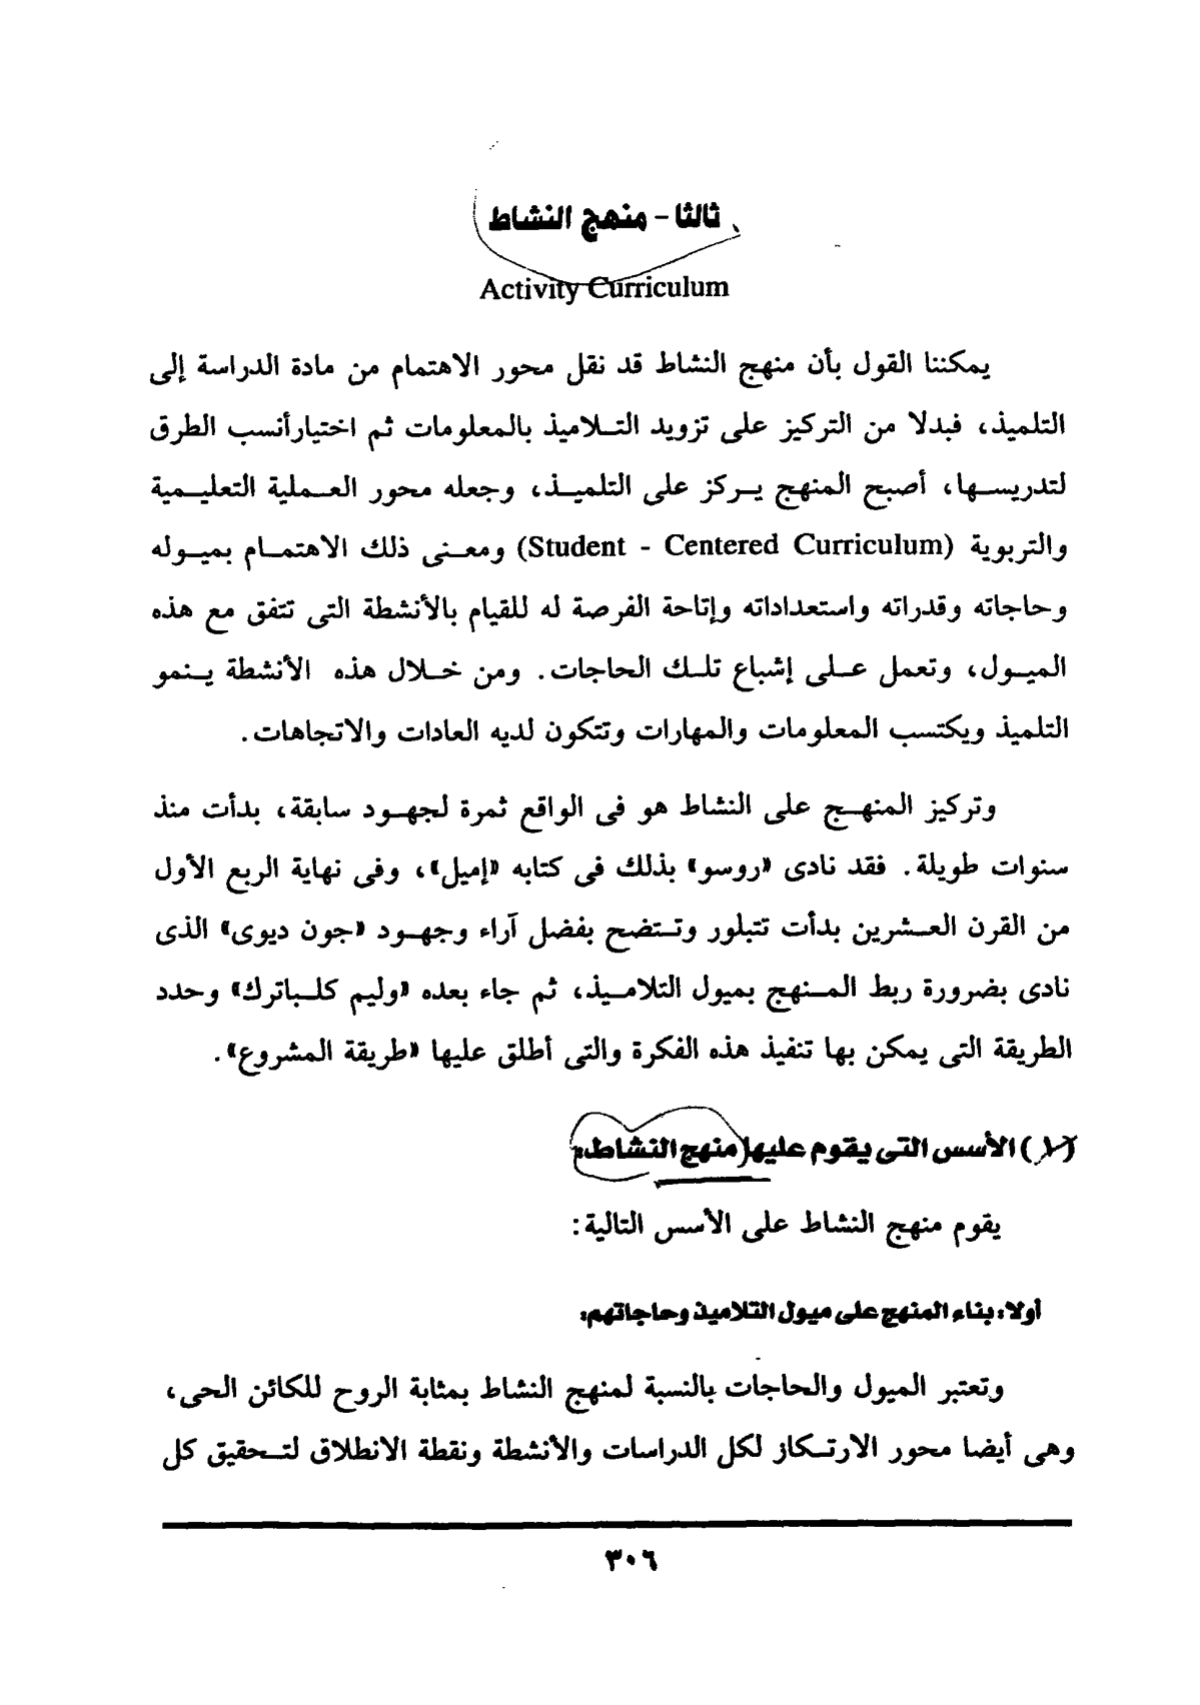 ثالثا - منهج النشاط
Activity Curriculum
يمكننا القول بأن منهج النشاط قد نقل محور الاهتمام من مادة الدراسة إلى
التلميذ، فبدلا من التركيز على تزويد التلاميذ بالمعلومات ثم اختيارأنسب الطرق
لتدريسها، أصبح المنهج يركز على التلميذ، وجعله محور العملية التعليمية
والتربوية (Student - Centered Curriculum) ومعنى ذلك الاهتمام بميوله
وحاجاته وقدراته واستعداداته وإتاحة الفرصة له للقيام بالأنشطة التى تتفق مع هذه
الميول، وتعمل على إشباع تلك الحاجات. ومن خلال هذه الأنشطة ينمو
التلميذ ويكتسب المعلومات والمهارات وتتكون لديه العادات والاتجاهات.
وتركيز المنهج على النشاط هو فى الواقع ثمرة لجهود سابقة، بدأت منذ
سنوات طويلة. فقد نادى «روسو» بذلك فى كتابه «إميل»، وفى نهاية الربع الأول
من القرن العشرين بدأت تتبلور وتتضح بفضل آراء وجهود «جون ديوى» الذى
نادى بضرورة ربط المنهج بميول التلاميذ، ثم جاء بعده «وليم كلباترك» وحدد
الطريقة التى يمكن بها تنفيذ هذه الفكرة والتى أطلق عليها «طريقة المشروع».
(١) الأسس التى يقوم عليها منهج النشاط:
يقوم منهج النشاط على الأسس التالية:
أولا: بناء المنهج على ميول التلاميذ وحاجاتهم:
وتعتبر الميول والحاجات بالنسبة لمنهج النشاط بمثابة الروح للكائن الحى،
وهى أيضا محور الارتكاز لكل الدراسات والأنشطة ونقطة الانطلاق لتحقيق كل
٣٠٦